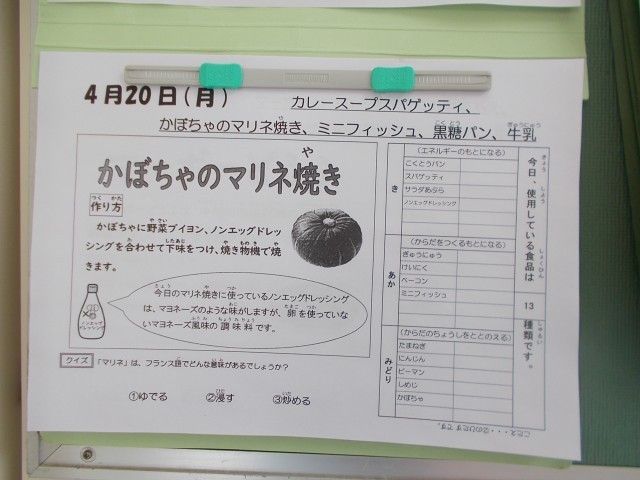 4月20日(月)
カレースープスパゲッティ、
かぼちゃのマリネ焼き、ミニフィッシュ、黒糖パン、牛乳
かぼちゃのマリネ焼き
作り方
かぼちゃに野菜ブイヨン、ノンエッグドレッ
シングを合わせて下味をつけ、焼き物機で焼
きます。
今日のマリネ焼きに使っているノンエッグドレッシング
は、マヨネーズのような味がしますが、卵を使っていな
いマヨネーズ風味の調味料です。
ノンエッグ
ドレッシング
クイズ 「マリネ」は、フランス語でどんな意味があるでしょうか?
①ゆでる ②浸す ③炒める
今日、使用している食品は
13
種類です。
き
(エネルギーのもとになる)
こくとうパン
スパゲッティ
サラダあぶら
ノンエッグドレッシング
あか
(からだをつくるもとになる)
ぎゅうにゅう
けいにく
ベーコン
ミニフィッシュ
みどり
(からだのちょうしをととのえる)
たまねぎ
にんじん
ピーマン
しめじ
かぼちゃ
こたえ・・・②のひたす です。